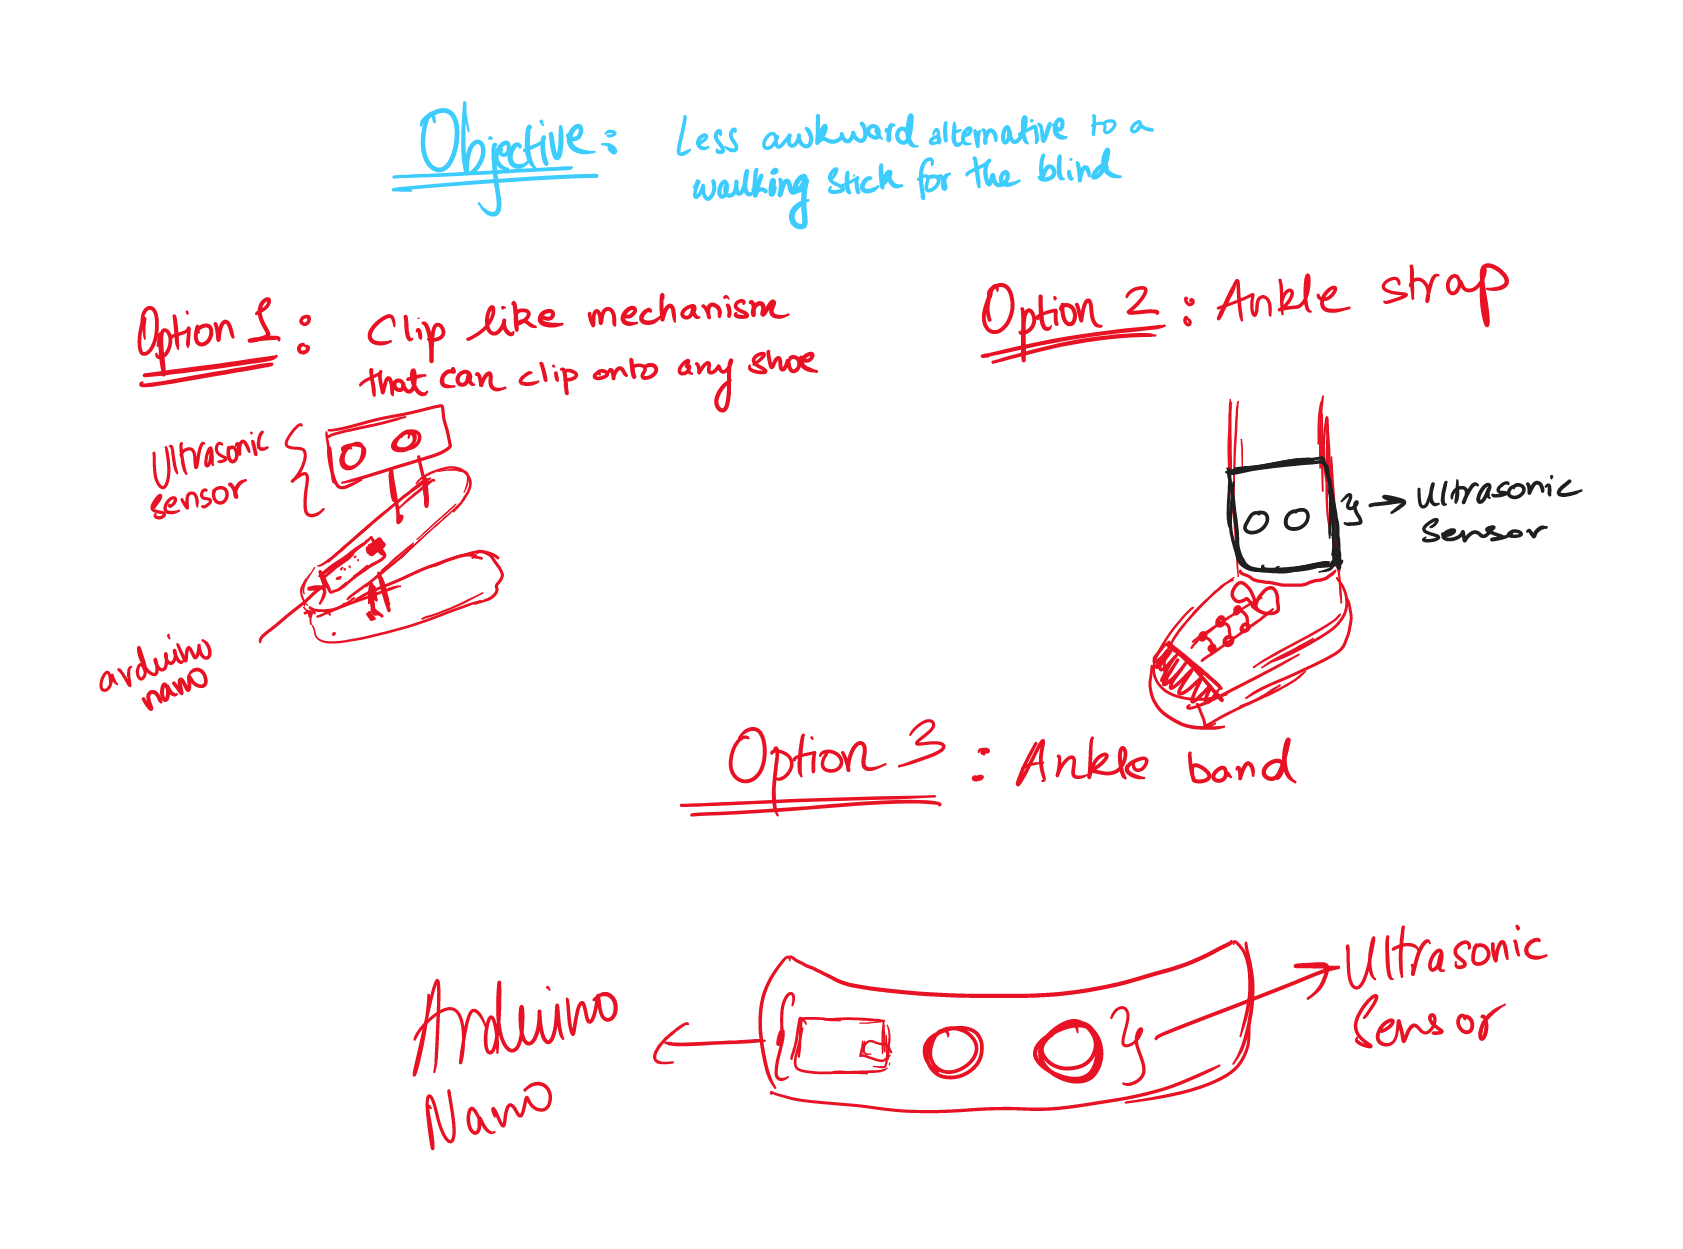 Objective: Less awkward alternative to a
walking stick for the blind
Option 1: Clip like mechanism
that can clip onto any shoe
Ultrasonic
sensor
arduino
nano
Option 2: Ankle strap
Ultrasonic
Sensor
Option 3: Ankle band
Arduino
Nano
Ultrasonic
Sensor